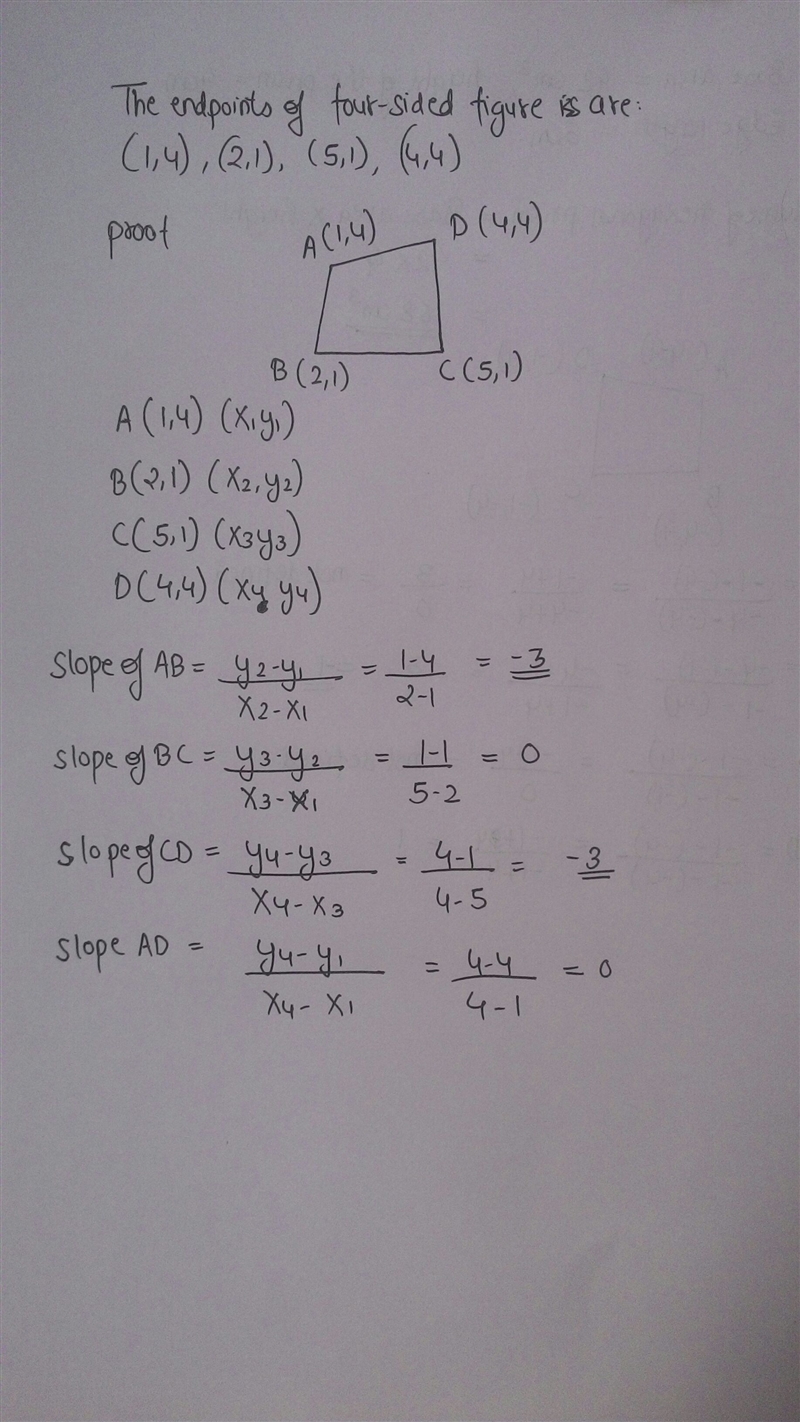 The endpoints of four-sided figure is are:
(1,4), (2,1), (5,1), (4,4)
proof
A(1,4) D(4,4)
B(2,1) C(5,1)
A(1,4) (x1y1)
B(2,1) (x2,y2)
C(5,1) (x3y3)
D(4,4) (x4 y4)
Slope of AB = y2-y1 / x2-x1 = 1-4 / 2-1 = -3
slope of BC = y3-y2 / x3-x1 = 1-1 / 5-2 = 0
Slope of CD = y4-y3 / x4-x3 = 4-1 / 4-5 = -3
Slope AD = y4-y1 / x4-x1 = 4-4 / 4-1 = 0